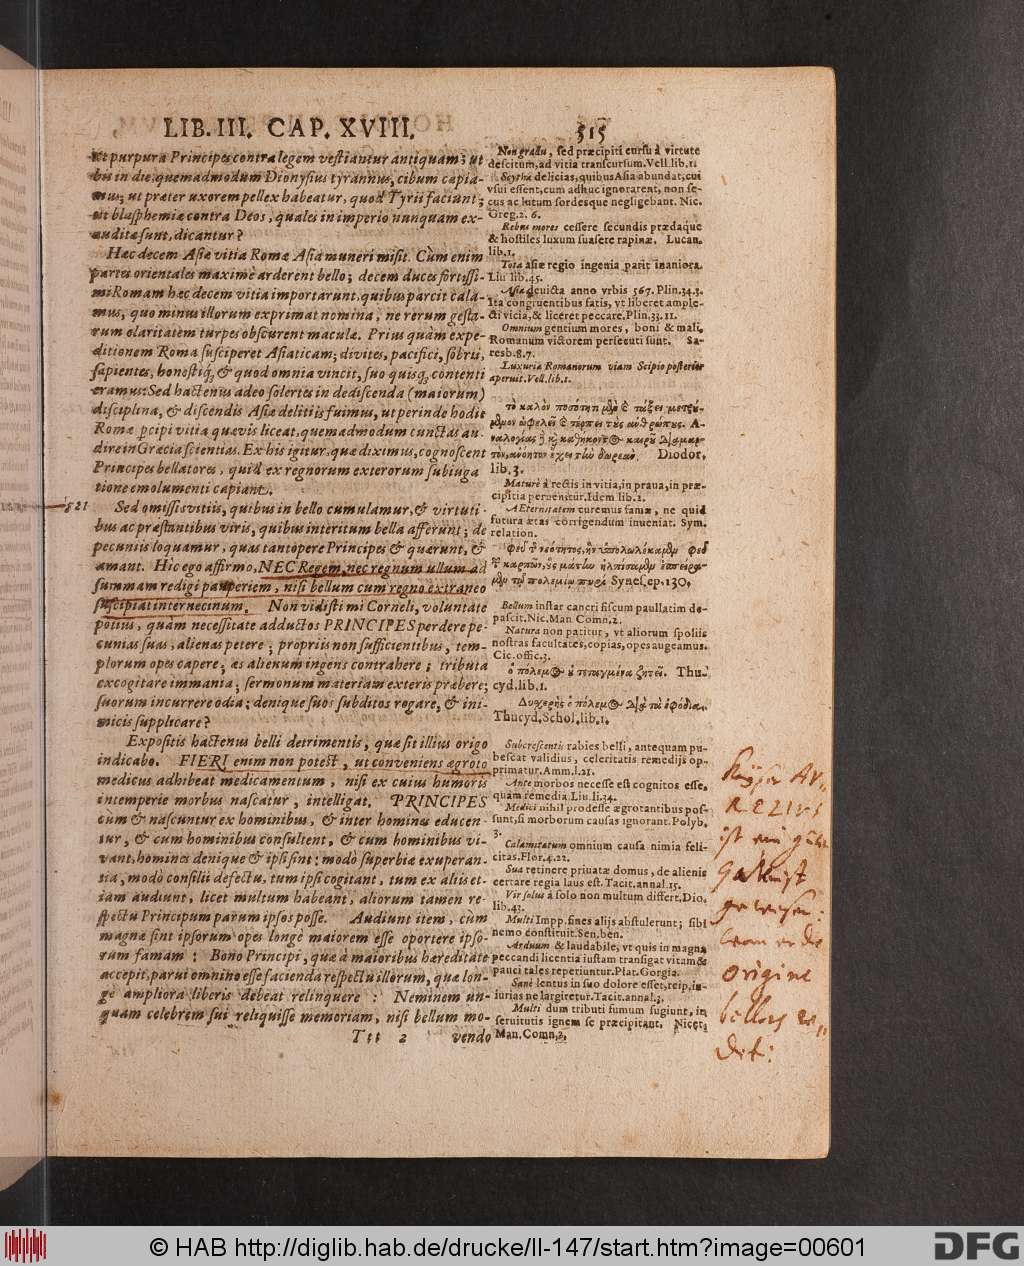 LIB. III. CAP. XVIII. 515
ut purpura Principes contra legem vestiantur antiquam; ut
bis in die, quemadmodum Dionysius tyrannus, cibum capia-
mus; ut præter uxorem pellex habeatur, quod Tyrii faciunt;
ut blasphemiæ contra Deos, quales in imperio nunquam ex-
auditæ sunt, dicantur?
Hæc decem Asiæ vitia Romæ Asia muneri misit. Cùm enim
partes orientales maximè arderent bello; decem duces fortissi-
mi Romam hæc decem vitia importarunt, quibus parcit cala-
mus, quo minus illorum exprimat nomina, ne rerum gesta-
rum claritatem turpes obscurent maculæ. Prius quàm expe-
ditionem Roma susciperet Asiaticam; divites, pacifici, sobrii,
sapientes, honestiq́;, & quod omnia vincit, suo quisq; contenti
eramus: Sed hactenus adeo solertes in dediscenda (maiorum)
disciplina, & discendis Asiæ delitiis fuimus, ut perinde hodie
Romæ p̱cipi vitia quævis liceat, quemadmodum cunctas au-
dire in Græcia scientias. Ex his igitur, quæ diximus, cognoscent
Principes bellatores, quid ex regnorum exterorum subiuga
tione emolumenti capiant.
521 Sed omissis vitiis, quibus in bello cumulamur, & virtuti-
bus ac præstantibus viris, quibus interitum bella afferunt; de
pecuniis loquamur, quas tantopere Principes & quærunt, &
amant. Hic ego affirmo, NEC Regem, nec regnum ullum ad
summam redigi pauperiem, nisi bellum cum regno extraneo
suscipiat internecinum. Non vidisti mi Corneli, voluntate
potius, quàm necessitate adductos PRINCIPES perdere pe-
cunias suas, alienas petere; propriis non sufficientibus, tem-
plorum opes capere, æs alienum ingens contrahere; tributa
excogitare immania; sermonum materiam exteris præbere;
suorum incurrere odia; denique suos subditos rogare, & ini-
micis supplicare?
Expositis hactenus belli detrimentis, quæ sit illius origo
indicabo. FIERI enim non potest, ut conveniens ægroto
medicus adhibeat medicamentum, nisi ex cuius humoris
intemperie morbus nascatur, intelligat. PRINCIPES
cum & nascuntur ex hominibus, & inter homines educen-
tur, & cum hominibus consultent, & cum hominibus vi-
vant, homines denique & ipsi sint: modò superbiæ exuperan-
tia, modò consilii defectu, tum ipsi cogitant, tum ex aliis et-
iam audiunt, licet multum habeant, aliorum tamen re-
spectu Principum parum ipsos posse. Audiunt item, cùm
magnæ sint ipsorum opes longè maiorem esse oportere ipso-
rum famam: Bono Principi, quæ à maioribus hæreditate
accepit, parvi omnino esse facienda respectu illorum, quæ lon-
gè ampliora liberis debeat relinquere: Neminem un-
quam celebrem sui reliquisse memoriam, nisi bellum mo-
Ttt 2 vendo
Non gradu, sed præcipiti cursu à virtute
descitum, ad vitia transcursum. Vell. lib. 1.
Scythæ delicias, quibus Asia abundat, cui
vsui essent, cum adhuc ignorarent, non se-
cus ac lutum sordesque negligebant. Nic.
Greg. 2. 6.
Rebus mores cessere secundis prædaque
& hostiles luxum suasere rapinæ. Lucan.
lib. 1.
Tota asiæ regio ingenia parit inaniora.
Liu lib. 45.
Asia deuicta anno vrbis 567. Plin. 34. 3.
Ita congruentibus fatis, vt liberet ample-
cti vicia, & liceret peccare. Plin. 33. 11.
Omnium gentium mores, boni & mali,
Romanum victorem persecuti sunt. Sa-
resb. 8. 7.
Luxuriæ Romanorum viam Scipio posterior
aperuit. Vell. lib. 1.
Diodor.
lib. 3.
Maturè à rectis in vitia, in praua, in præ-
cipitia peruenitur. Idem lib. 2.
AEternitatem curemus famæ, ne quid
futura ætas corrigendum inueniat. Sym.
relation.
Synes. ep. 130.
Bellum instar cancri fiscum paullatim de-
pascit. Nic. Man Comn. 2.
Natura non patitur, vt aliorum spoliis
nostras facultates, copias, opes augeamus.
Cic. offic. 3.
ὁ πόλεμος οὐ τεταγμένα ζητεῖ. Thu-
cyd. lib. 1.
Δυσχερὴς ὁ πόλεμος διὰ τὰ ἐφόδια.
Thucyd. Schol. lib. 1.
Subcrescentis rabies belli, antequam pu-
bescat validius, celeritatis remediis op-
primatur. Amm. l. 21.
Ante morbos necesse est cognitos esse,
quàm remedia. Liu. li. 34.
Medici nihil prodesse ægrotantibus pos-
sunt, si morborum causas ignorant. Polyb.
3.
Calamitatum omnium causa nimia feli-
citas. Flor. 4. 22.
Sua retinere priuatæ domus, de alienis
certare regia laus est. Tacit. annal. 15.
Vir solus à solo non multum differt. Dio.
lib. 43.
Multi Impp. fines aliis abstulerunt; sibi
nemo constituit. Sen. ben.
Arduum & laudabile, vt quis in magna
peccandi licentia iustam transigat vitam &
pauci tales reperiuntur. Plat. Gorgia.
Sanè lentus in suo dolore esset, reip. in-
iurias ne largiretur. Tacit. annal. 3.
Multi dum tributi fumum fugiunt, in
seruitutis ignem se præcipitant. Nicet.
Man. Comn. 2.
Kayser AV-
RELIUS
ist ein guter
gewesen:
wann er die
origine
bellorum
© HAB http://diglib.hab.de/drucke/ll-147/start.htm?image=00601
DFG